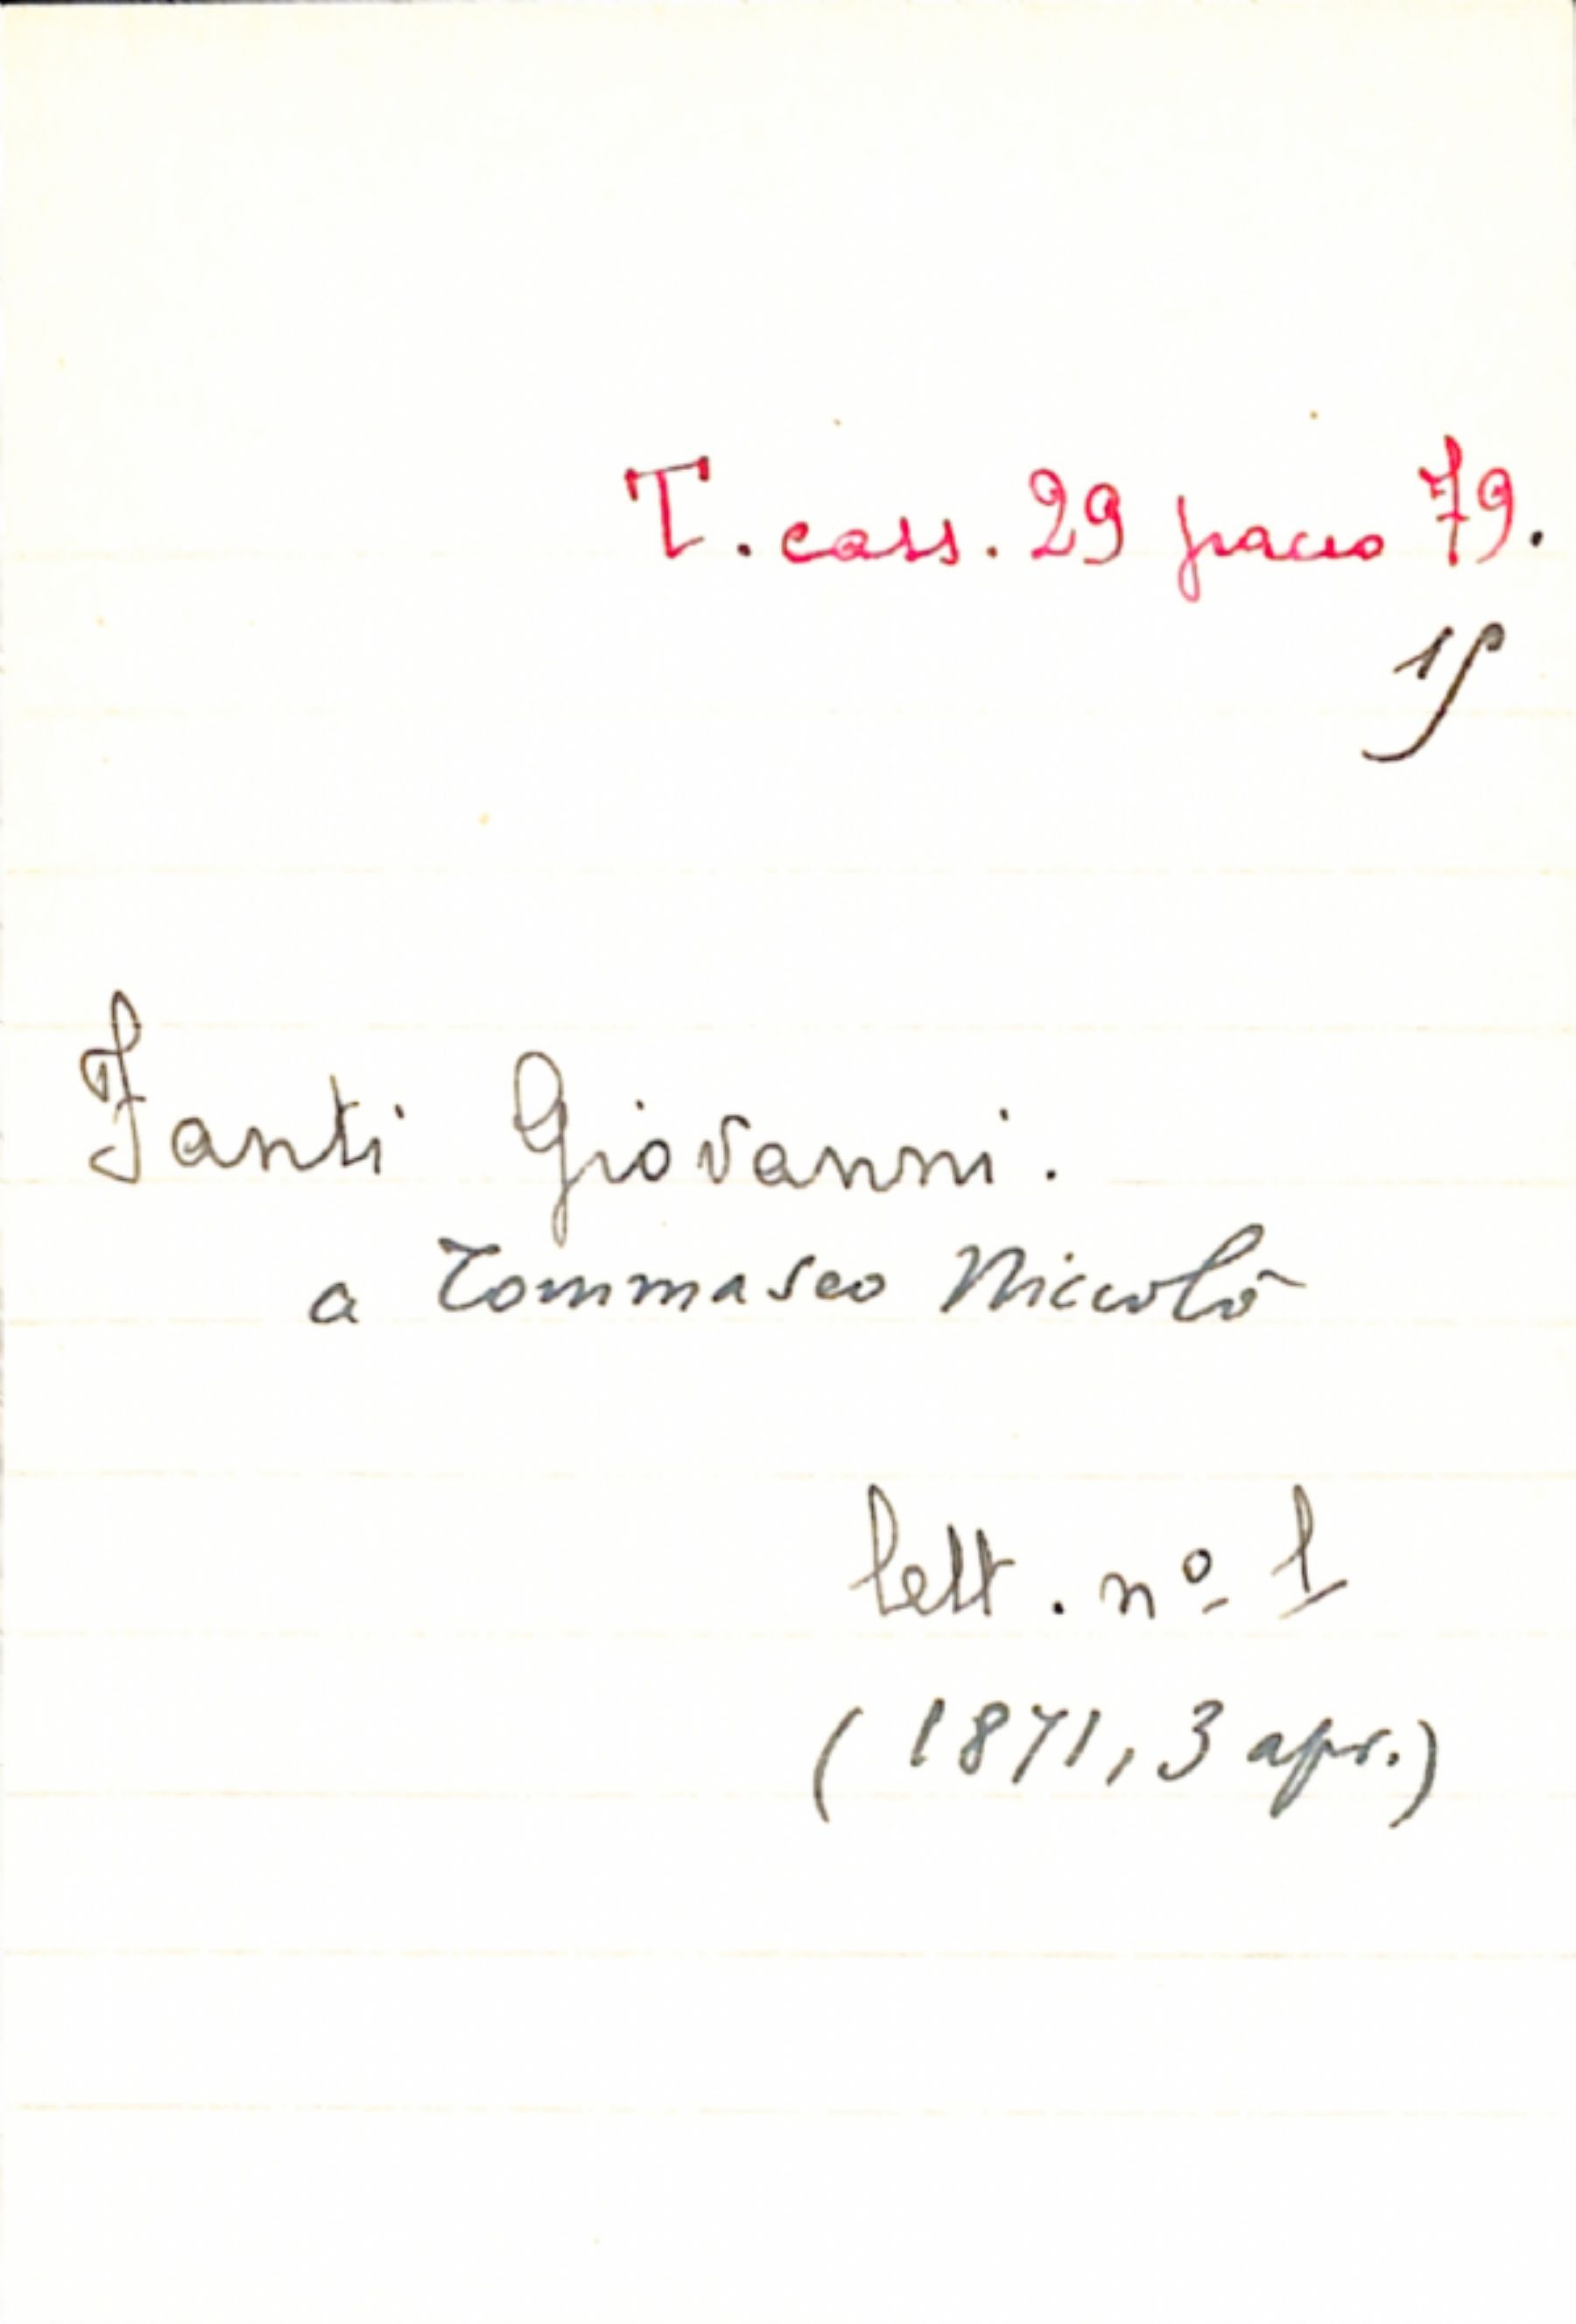 T. cass. 29 pacco 79.
Fanti Giovanni.
a Tommaseo Niccolò
lett. nº 1
(1871, 3 apr.)